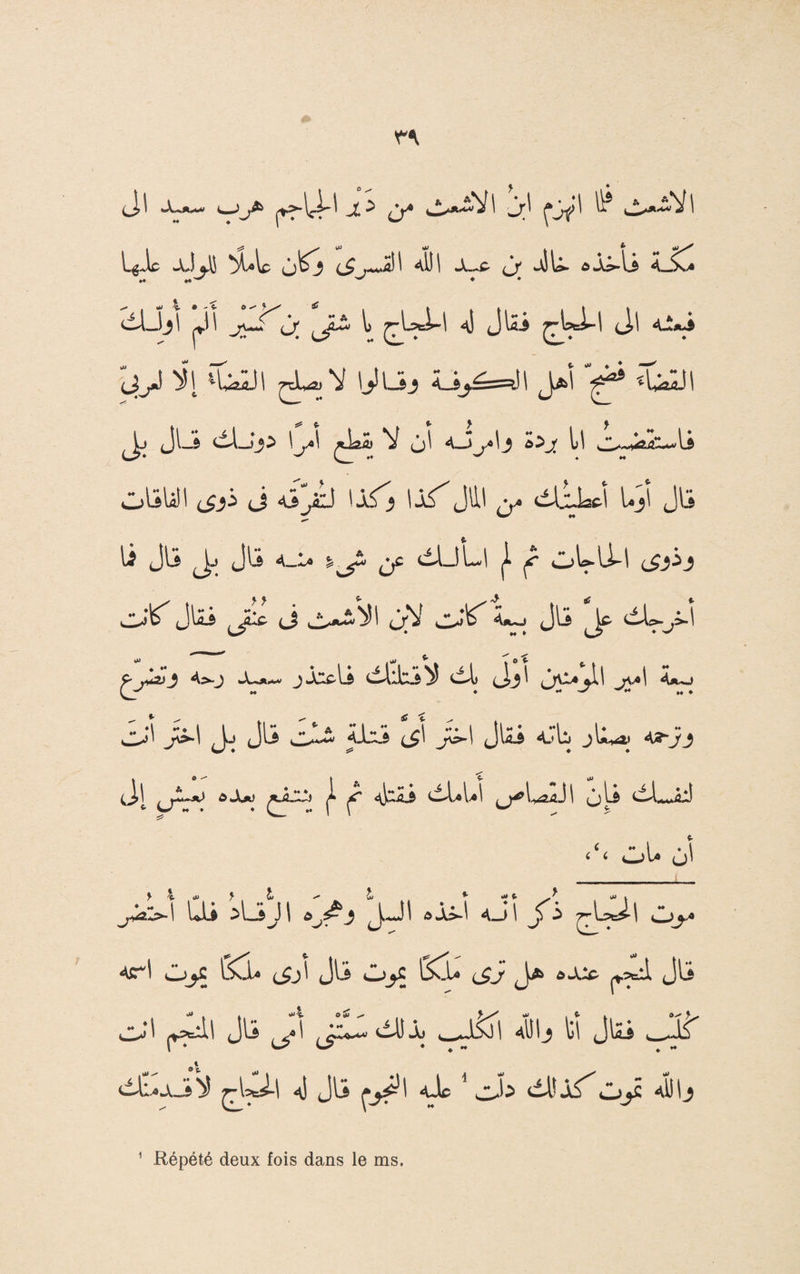 ٣٩
الاشعث لما انهزم ابن الاشعث من دَير الجماجم هرب سعيد الى
مكّة فاخذه خالد بن عبد الله القسرىّ وكان عاملا للوليد عليها
فبعثه الى الحجاج فقال له الحجاج يا شقىّ بن كُسَير الم اُولّك
القضاء فضجّ اهل الكوفة وقالوا لا يصلح القضاء الّا لعربىّ
فاستقضيت ابا بردة وامرته ان لا يقطع امرا دونك قال بلى
قال اوما اعطيتك من المال كذا وكذا لتفرّقه فى ذوى الفاقات
وذوى الحاجات ثم لم اسالك عن شىء منه قال بلى قال فما
اخرجك علىّ قال بيعة كانت لابن الاشعث فى عنقى فقال كانت
بيعة امير المؤمنين اولى بك لاقتلنّك فاعتذر سعيد وتضرّع
فقال اختر اىّ قتلة شئت قال بل اختر انت
لنفسك فانّ القصاص امامك فقتله ثم لم ينتفع بعده بعيش الى
ان مات ،،
موت الحجاج ذُكر انّه اخذه السلّ وهجره الرقاد فلمّا احتُضر
قال لمنجّم عنده هل ترى ملكًا يموت قال ارى ملكًا يموت اسمه
كليب فقال انا والله الكليب بذلك سمّتنى امّى قال المنجّم انت
والله تموت كذلك دلّت ¹ عليه النجوم قال له الحجاج لاقدّمنّك
¹ Répété deux fois dans le ms.